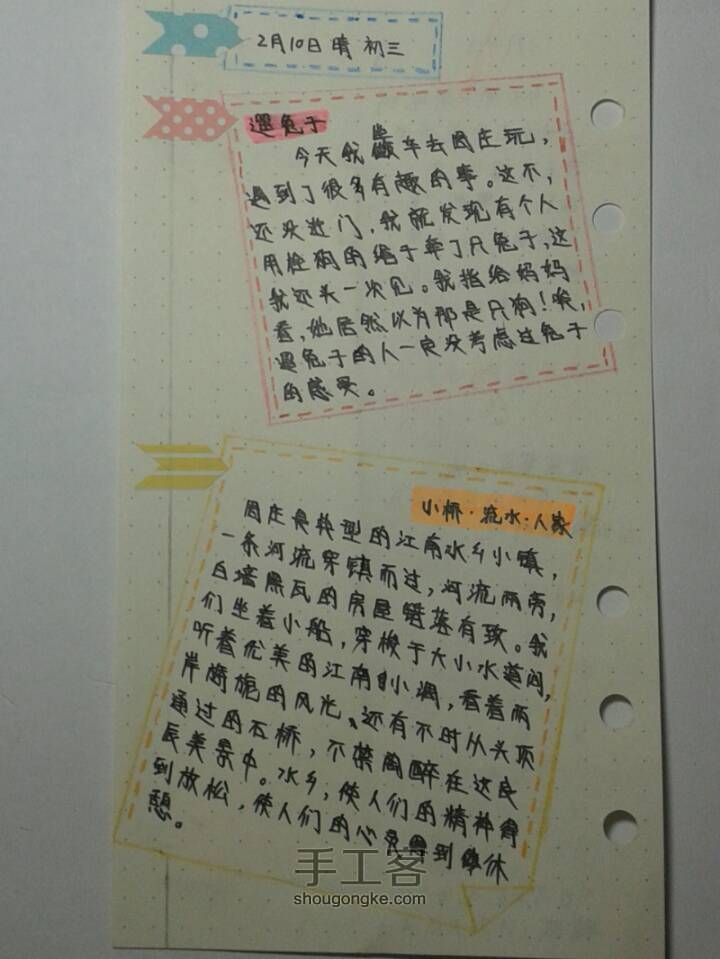 2月10日 晴 初三
遛兔子
今天我坐车去周庄玩，
遇到了很多有趣的事。这不，
还没进门，我就发现有个人
用栓狗的绳子牵了只兔子，这
我还头一次见。我指给妈妈
看，她居然以为那是只狗！唉，
遛兔子的人一定没考虑过兔子
的感受。
小桥·流水·人家
周庄是典型的江南水乡小镇，
一条河流穿镇而过，河流两旁，
白墙黑瓦的房屋错落有致。我
们坐着小船，穿梭于大小水道间，
听着优美的江南小调，看着两
岸旖旎的风光、还有不时从头顶
通过的石桥，不禁陶醉在这良
辰美景中。水乡，使人们的精神得
到放松，使人们的心灵得到休
憩。
手工客
shougongke.com